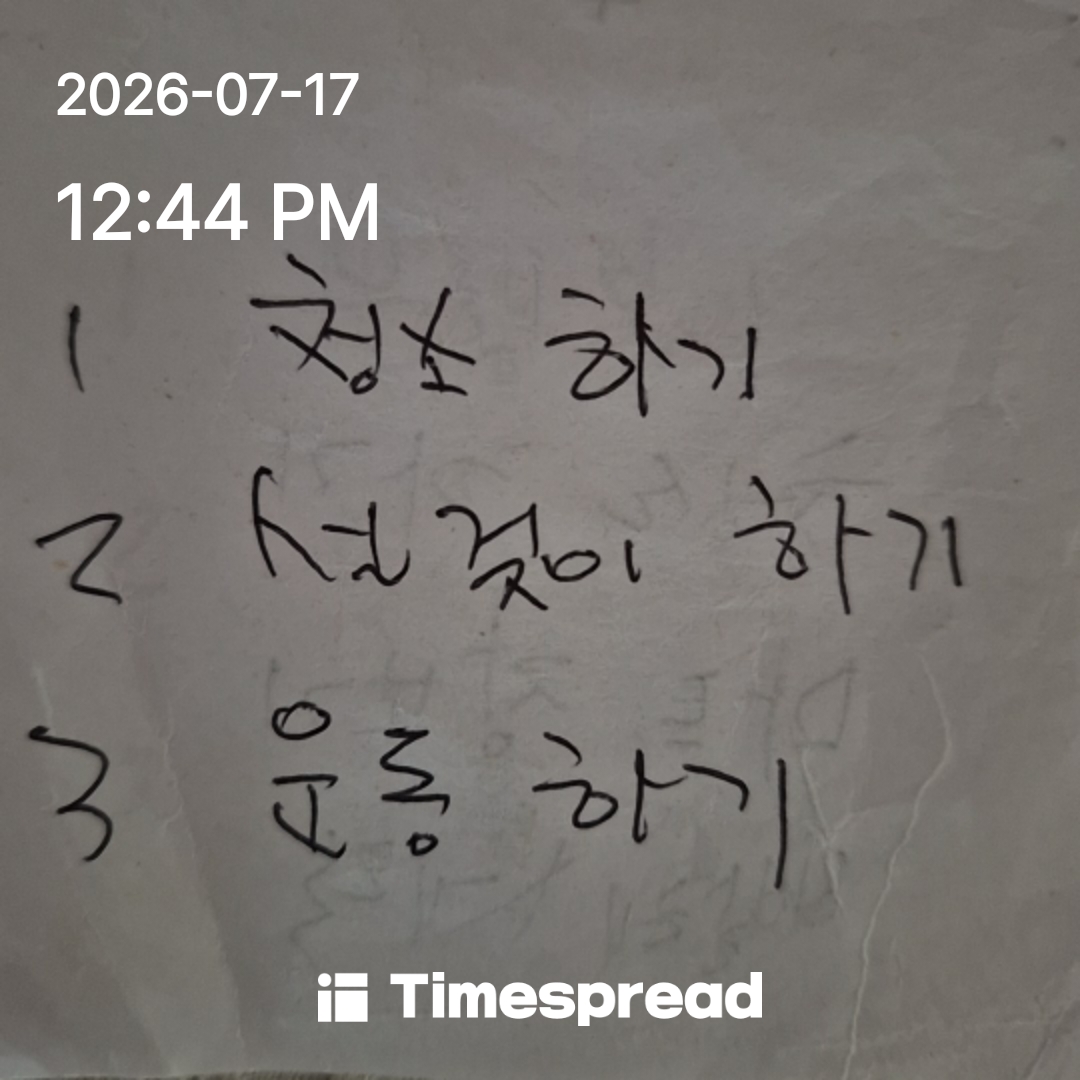 2026-07-17
12:44 PM
1 청소 하기
2 설겆이 하기
3 운동 하기
Timespread